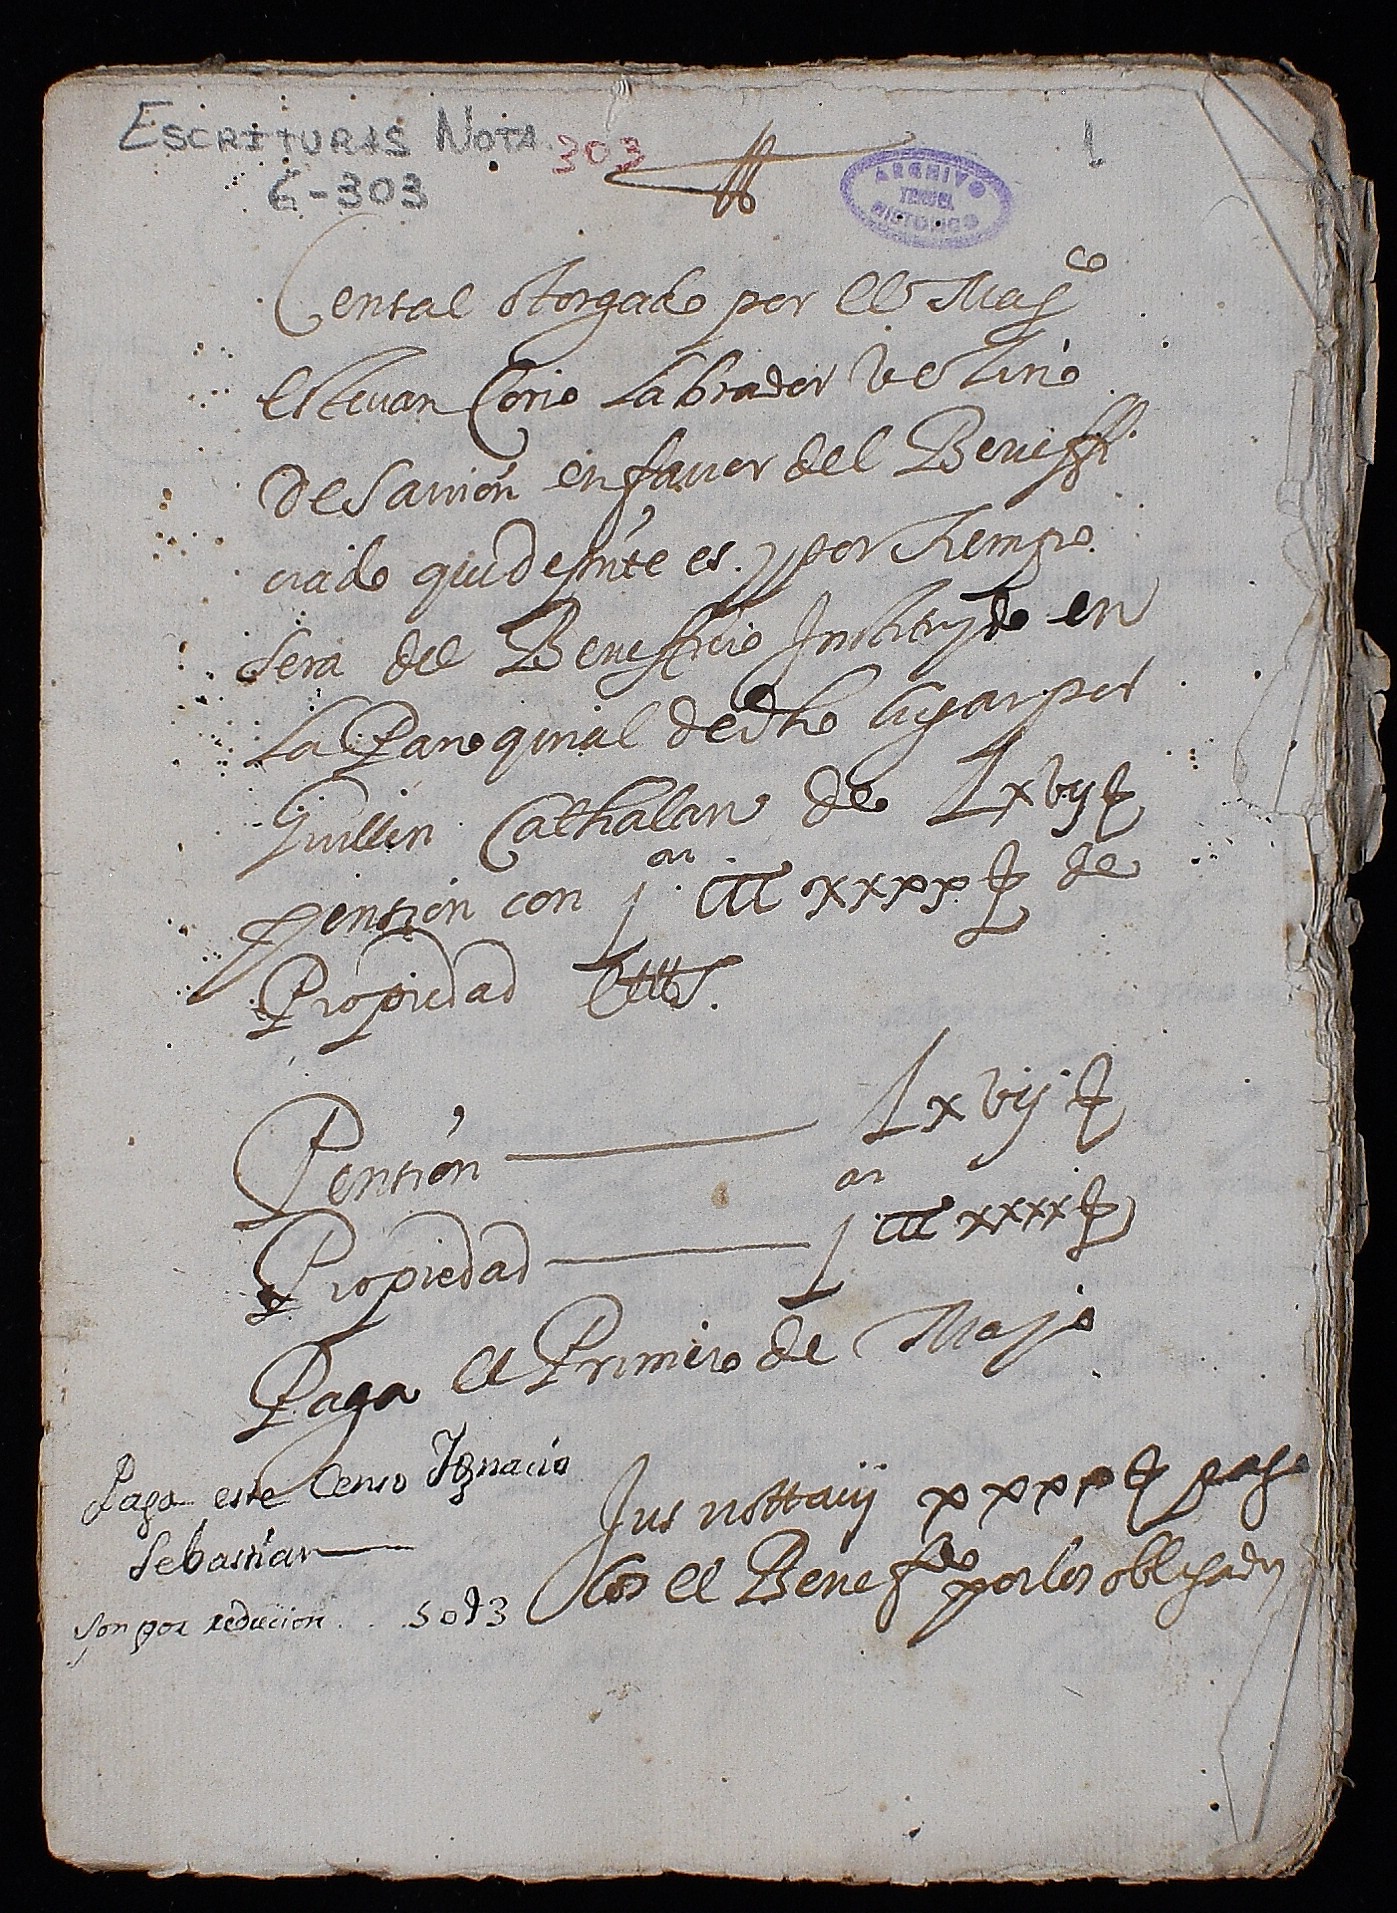 ESCRITURAS NOTA. 303
6-303
1
ARCHIVO
TERUEL
HISTORICO
Censal otorgado por el Mag^co
Estevan Lorio Labrador Vezino
de Sarrión en favor del Beneffi
ciado que de pnte es. y por tiempo
sera del Beneficio Instituydo en
la Parroquial de dho lugar por
Guillen Cathalan de Lxvij
pension con j^m CCC xxxx de
Propiedad
Pensión Lxvij
Propiedad j^m CCC xxxx
Paga el Primero de Mayo
Paga este Censo Ignacio
Sebastian
son por reducion . . 50 d 3
Jus nottarij xxxx paga
los el Benef^do por los obligados